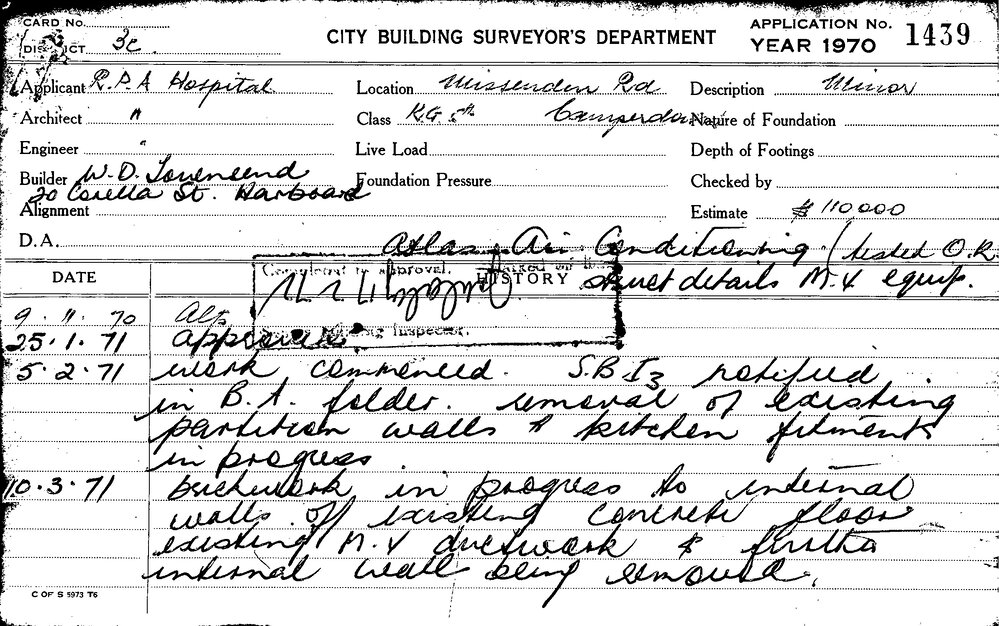 CARD No.
DISTRICT 3c
CITY BUILDING SURVEYOR'S DEPARTMENT
APPLICATION No. 1439
YEAR 1970
Applicant R.P.A Hospital
Location Missenden Rd
Description Minor
Architect "
Class K.G 5th Camperdown
Nature of Foundation
Engineer "
Live Load
Depth of Footings
Builder W.D. Townsend
20 Corella St. Harboard
Foundation Pressure
Checked by
Alignment
Estimate $ 110000
D.A.
Atlas Air Conditioning (tested O.K.
duct details M.V equip.
Completed to approval. Marked on
Building Inspector.
DATE
HISTORY
9. 11. 70 Alts
25.1.71 approved
5.2.71 work commenced. S.B I3 notified
in B.A. folder. removal of existing
partition walls & kitchen fitments
in progress.
10.3.71 brickwork in progress to internal
walls off existing concrete floor
existing M.V ductwork & further
internal wall being removed.
C OF S 5973 T6